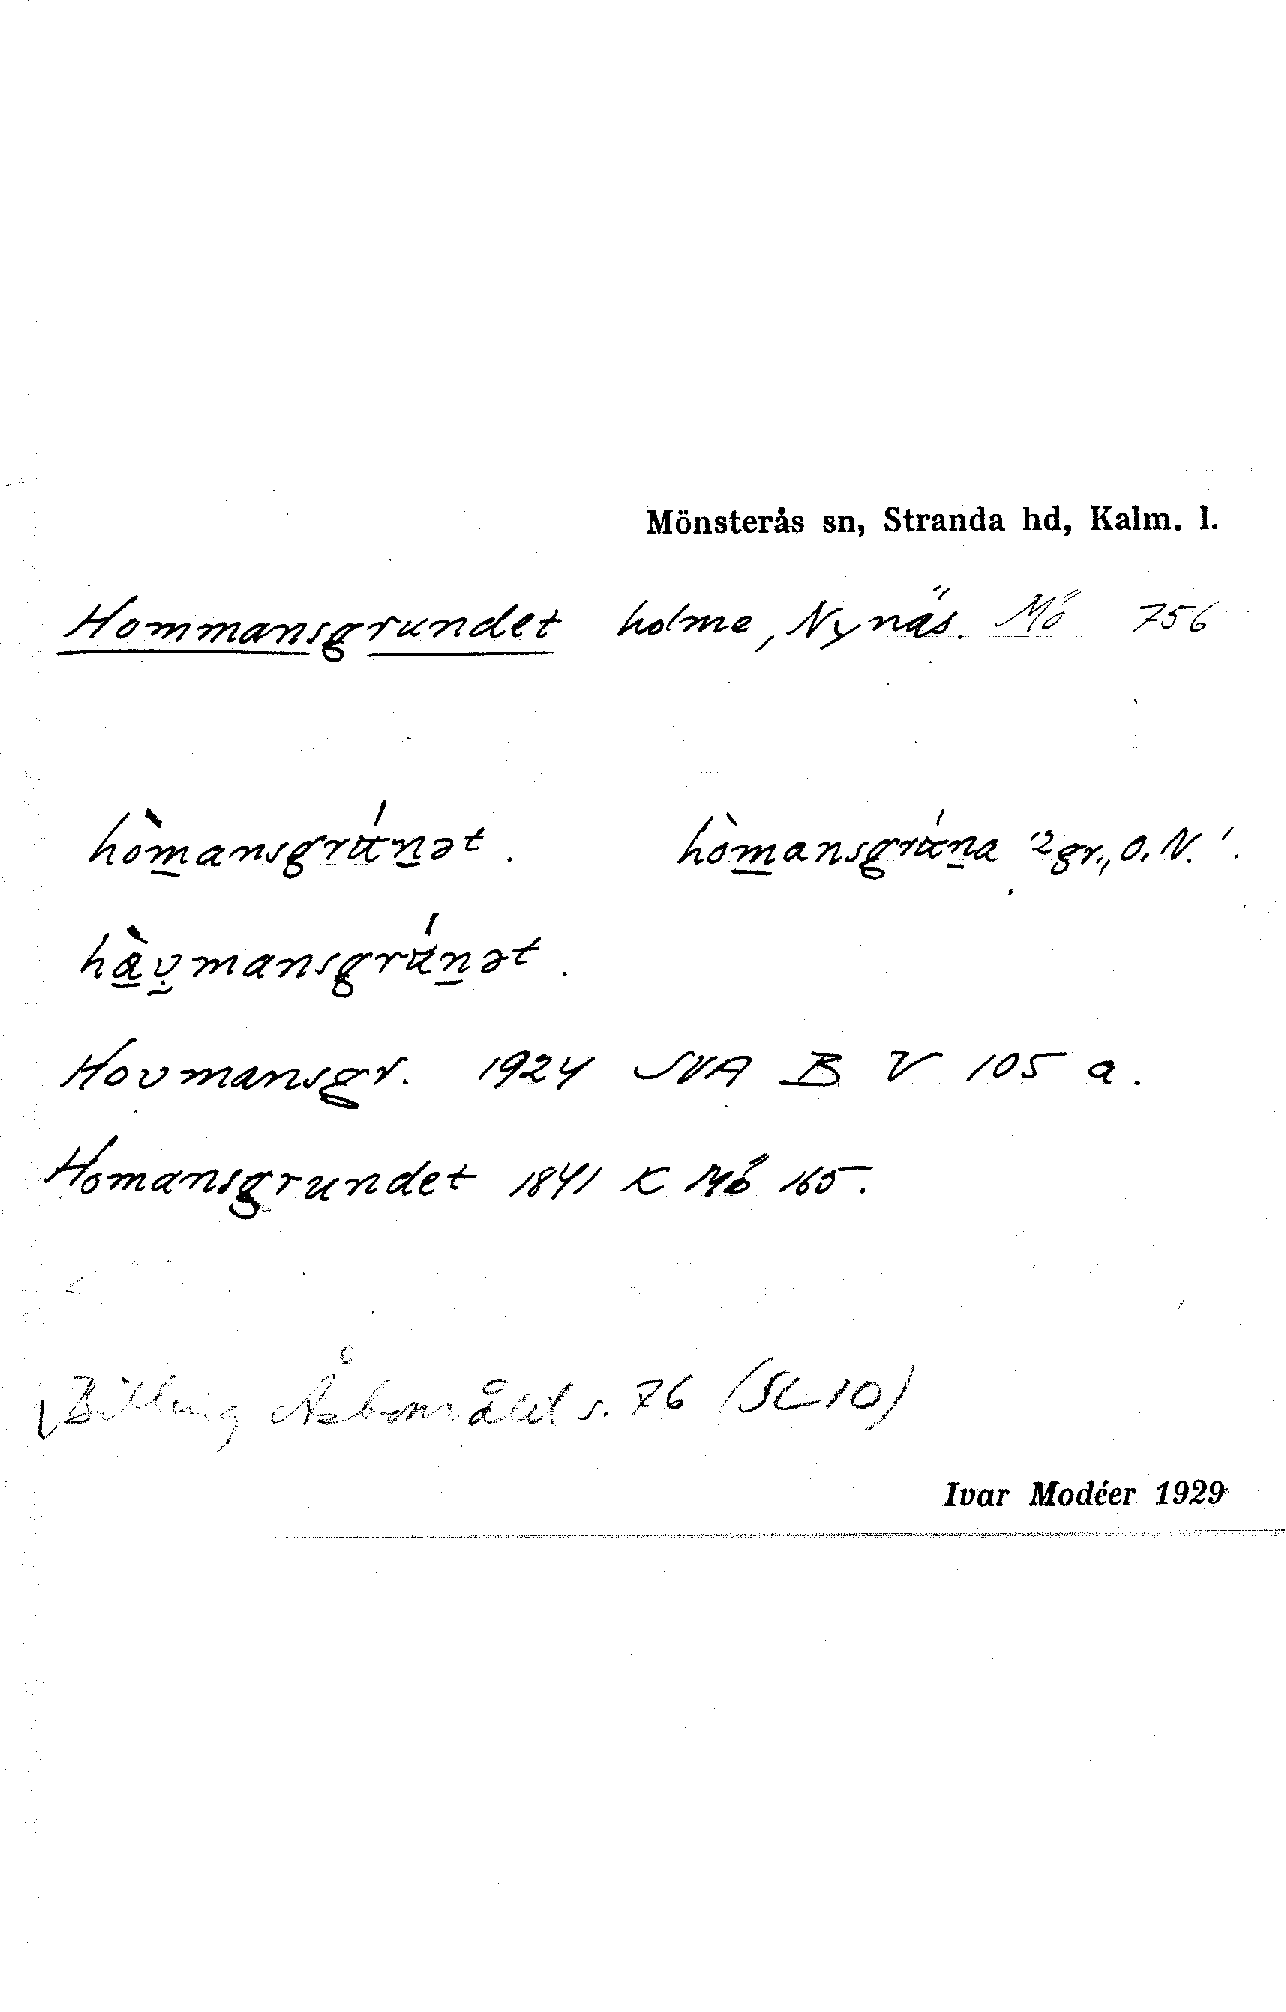 Mönsterås sn, Stranda hd, Kalm. l.
Hommansgrundet holme, Nynäs. Mö 756
hòmansgrúnət. hòmansgrúna '2 gr., O. N.'.
hàvmansgrúnət.
Hovmansgr. 1924 SVA B V 105 a.
Homansgrundet 1841 K Mö 165.
Billing Åsbområdet s. 76 (SL 10)
Ivar Modéer 1929